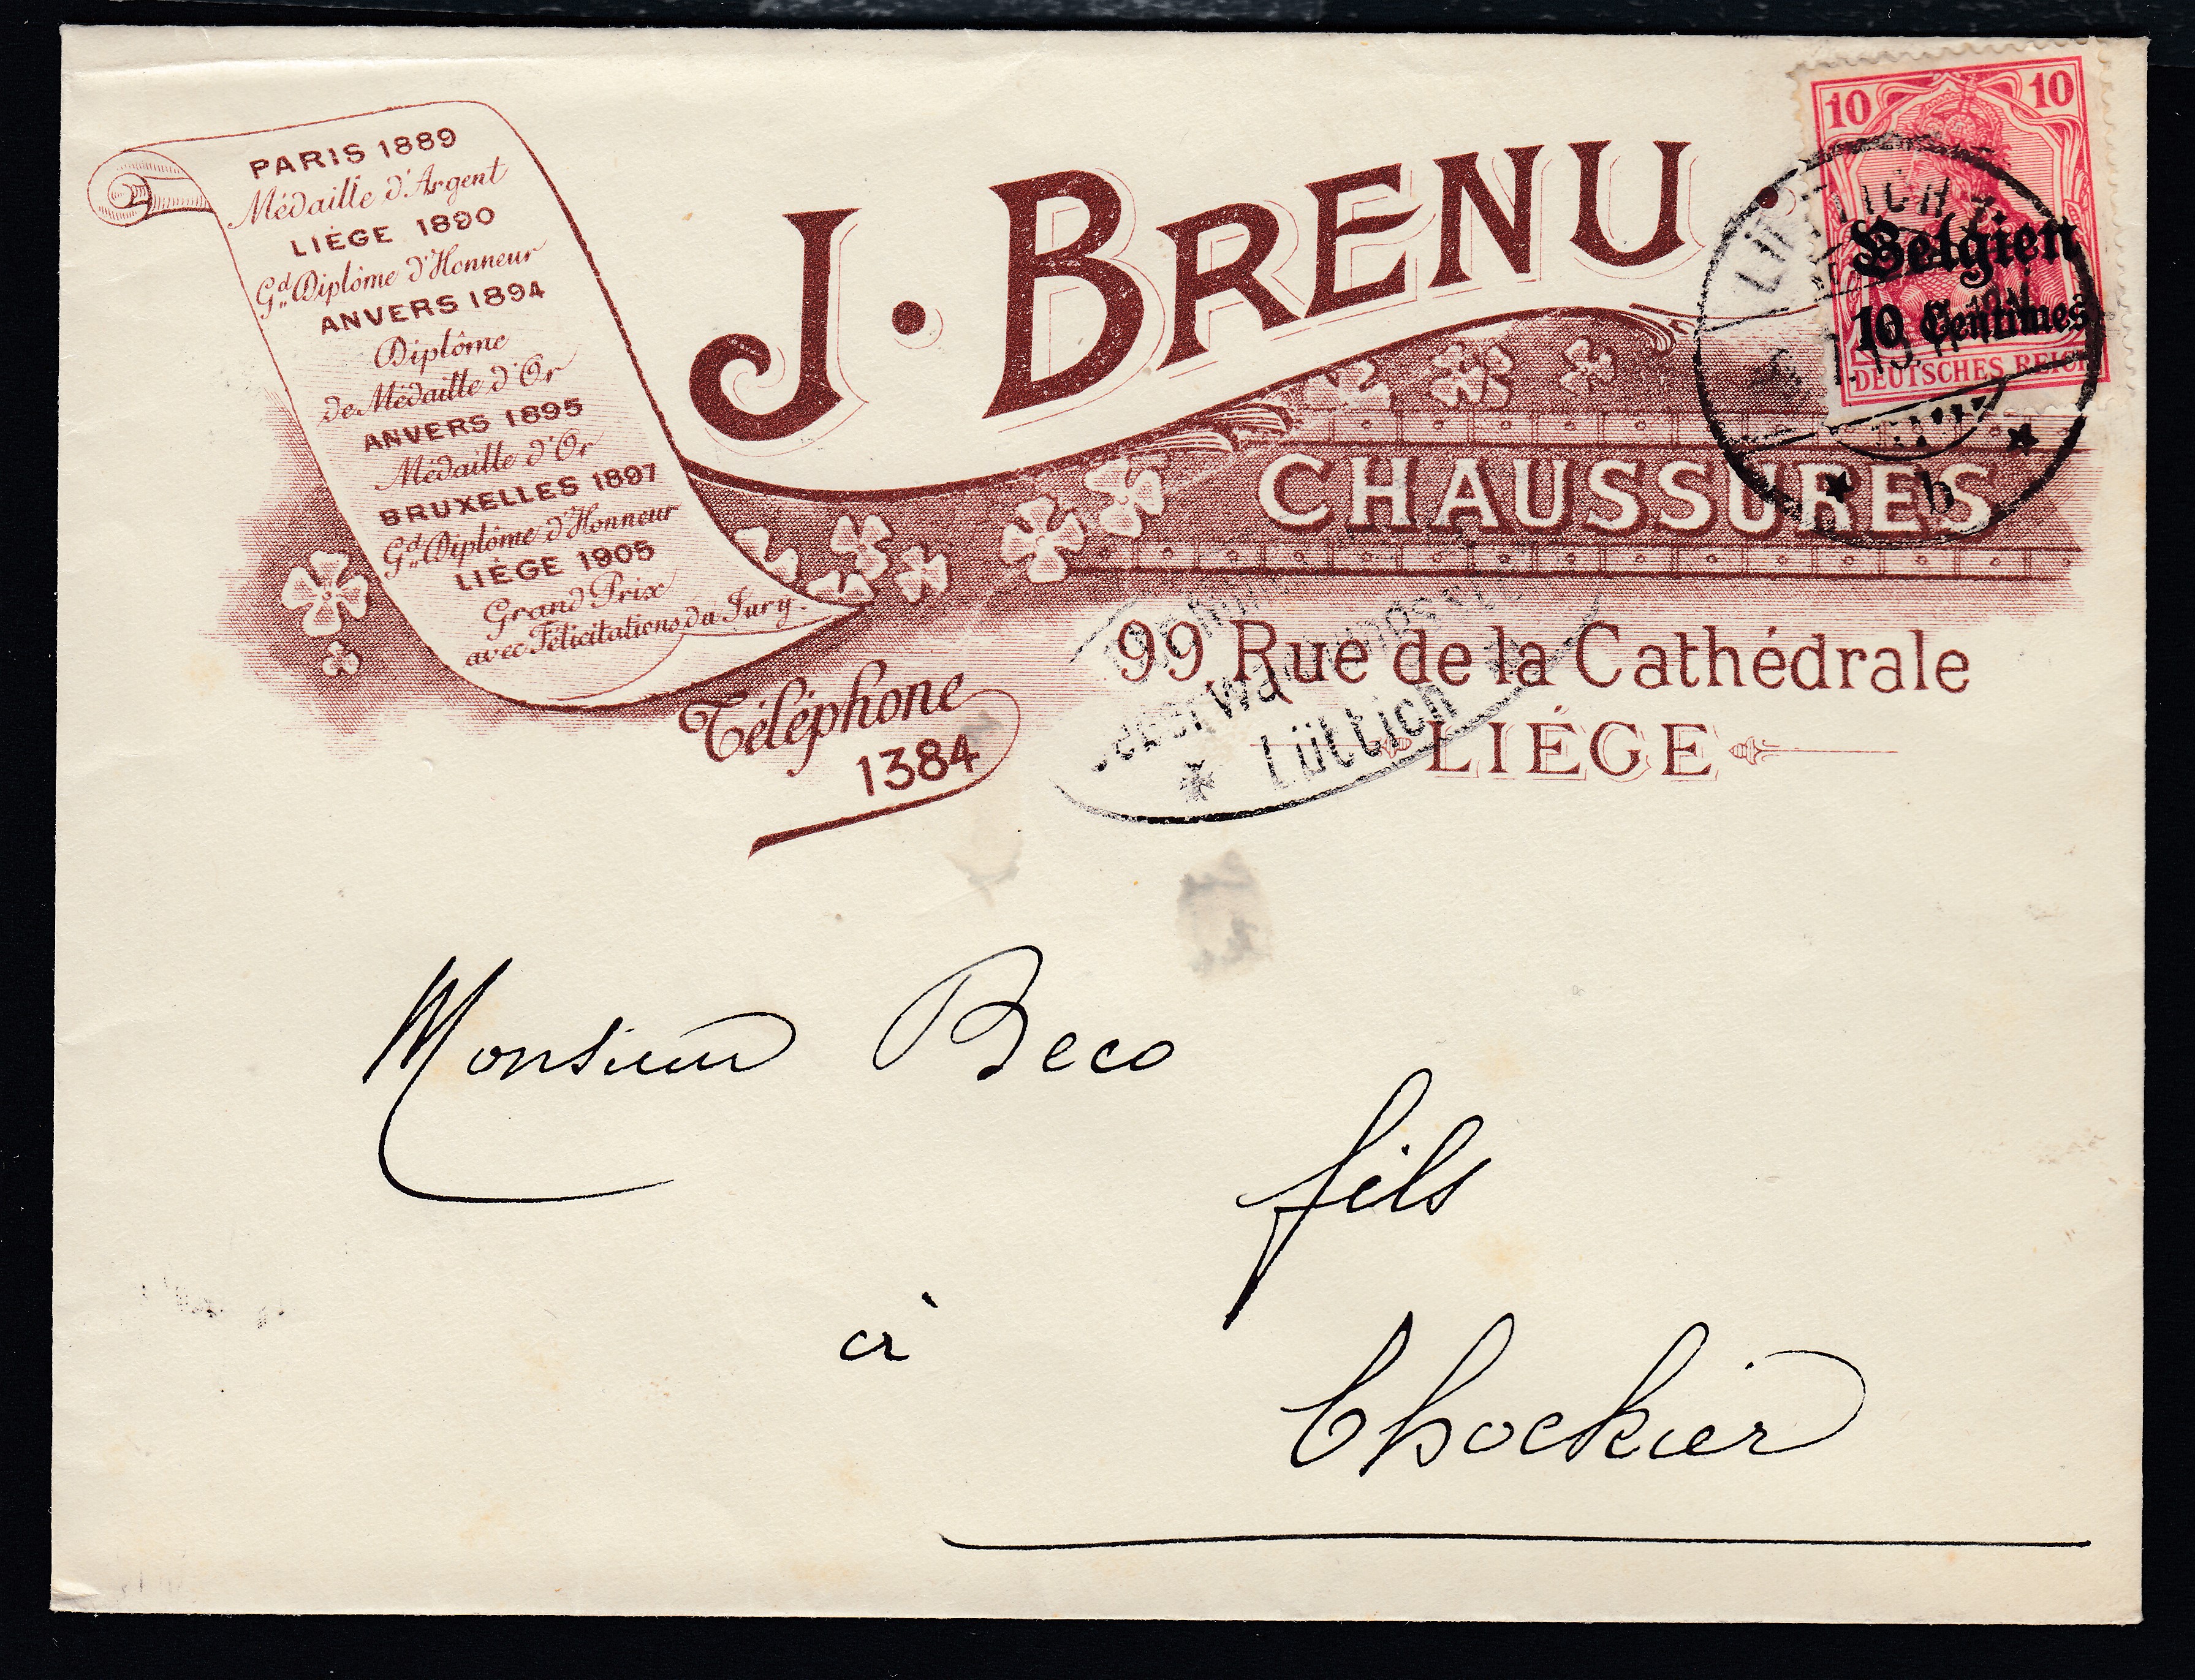 PARIS 1889
Médaille d'Argent
LIÉGE 1890
Gd Diplôme d'Honneur
ANVERS 1894
Diplôme
de Médaille d'Or
ANVERS 1895
Médaille d'Or
BRUXELLES 1897
Gd Diplôme d'Honneur
LIÉGE 1905
Grand Prix
avec Félicitations du Jury.
J. BRENU
CHAUSSURES
99, Rue de la Cathédrale
LIÉGE
Téléphone
1384
10 10
Belgien
10 Centimes
DEUTSCHES REICH
LÜTTICH
b
Lüttich
Monsieur Beco
fils
à
Chockier